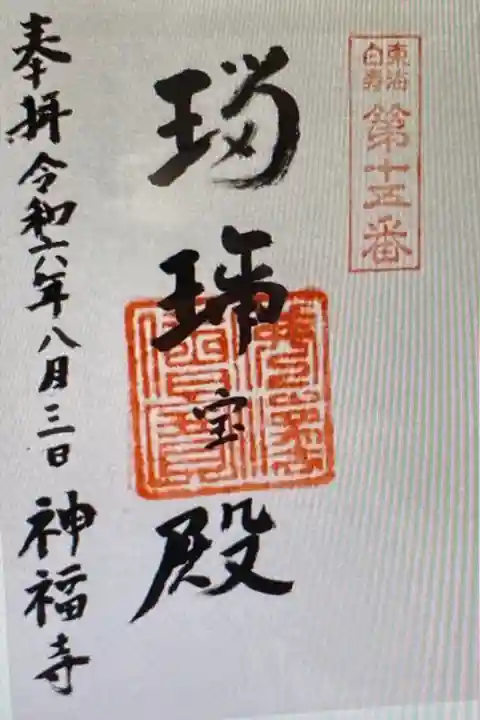 東海
白寿
第十五番
瑠璃宝殿
奉拝令和六年八月三日
神福寺